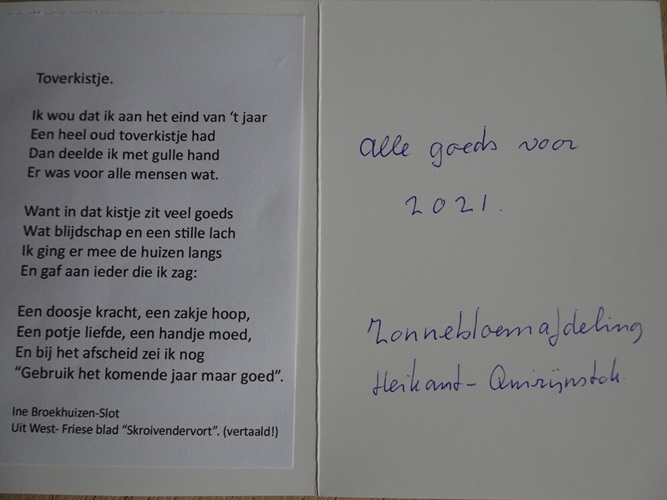 Toverkistje.
Ik wou dat ik aan het eind van 't jaar
Een heel oud toverkistje had
Dan deelde ik met gulle hand
Er was voor alle mensen wat.
Want in dat kistje zit veel goeds
Wat blijdschap en een stille lach
Ik ging er mee de huizen langs
En gaf aan ieder die ik zag:
Een doosje kracht, een zakje hoop,
Een potje liefde, een handje moed,
En bij het afscheid zei ik nog
“Gebruik het komende jaar maar goed”.
Ine Broekhuizen-Slot
Uit West- Friese blad “Skroivendervort”. (vertaald!)
alle goeds voor
2021.
Zonnebloemafdeling
Heikant- Quirijnstok.